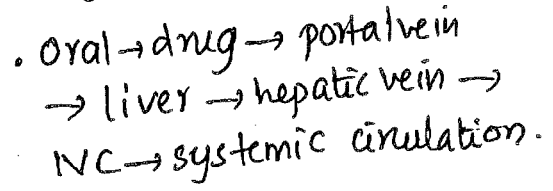 . Oral → drug → portal vein
→ liver → hepatic vein →
IVC → systemic circulation.